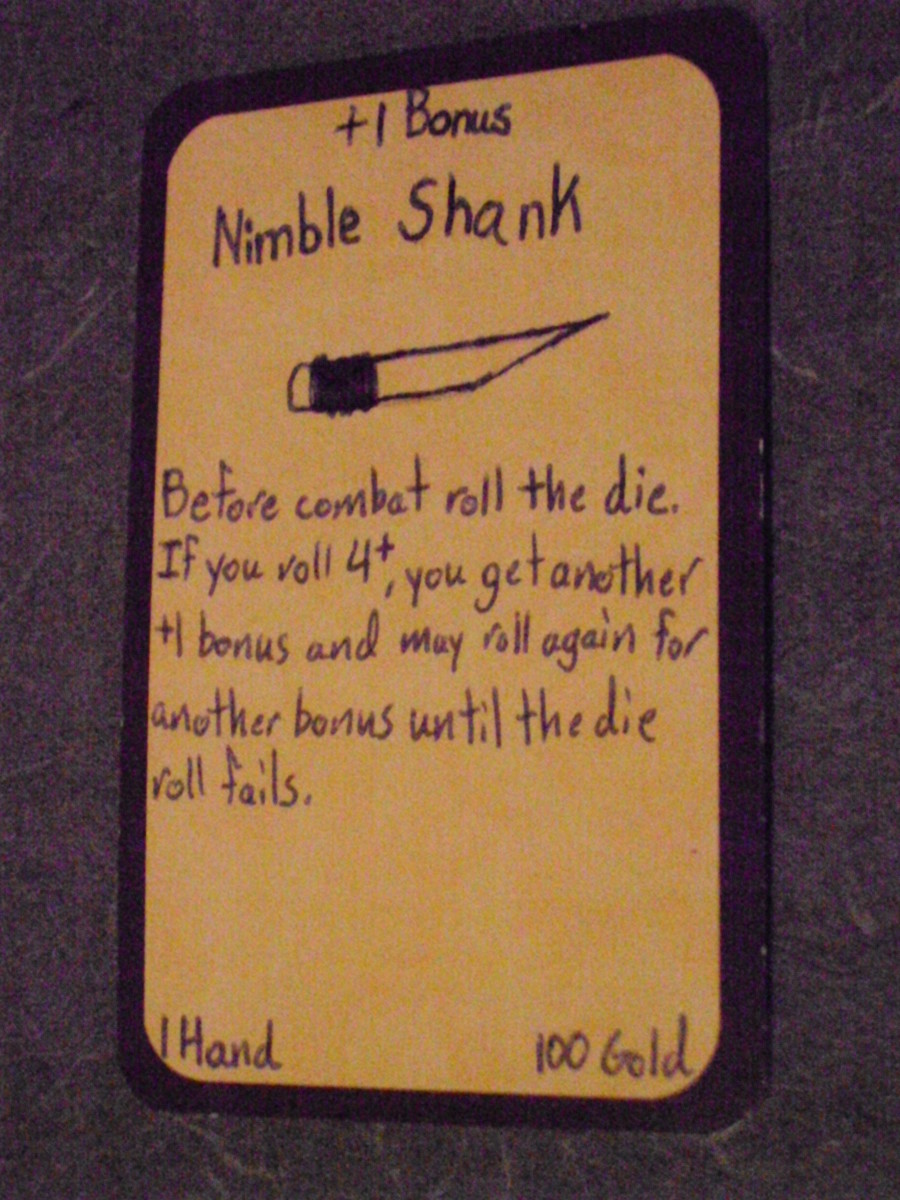 +1 Bonus
Nimble Shank
Before combat roll the die.
If you roll 4+, you get another
+1 bonus and may roll again for
another bonus until the die
roll fails.
1 Hand
100 Gold